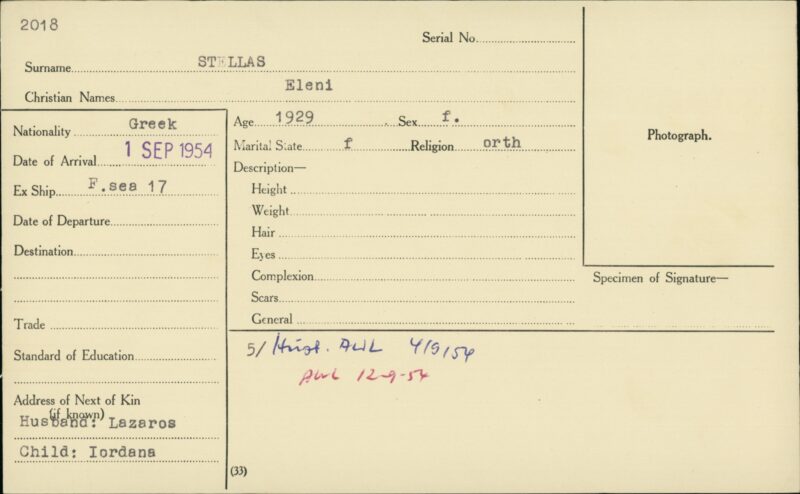 2018
Serial No.
Surname STELLAS
Christian Names Eleni
Nationality Greek
Date of Arrival 1 SEP 1954
Ex Ship F.sea 17
Date of Departure
Destination
Trade
Standard of Education
Address of Next of Kin
(if known)
Husband: Lazaros
Child: Iordana
Age 1929 Sex f.
Marital State f Religion orth
Description—
Height
Weight
Hair
Eyes
Complexion
Scars
General
5/ AWL 4/9/54
AWL 12-9-54
(33)
Photograph.
Specimen of Signature—